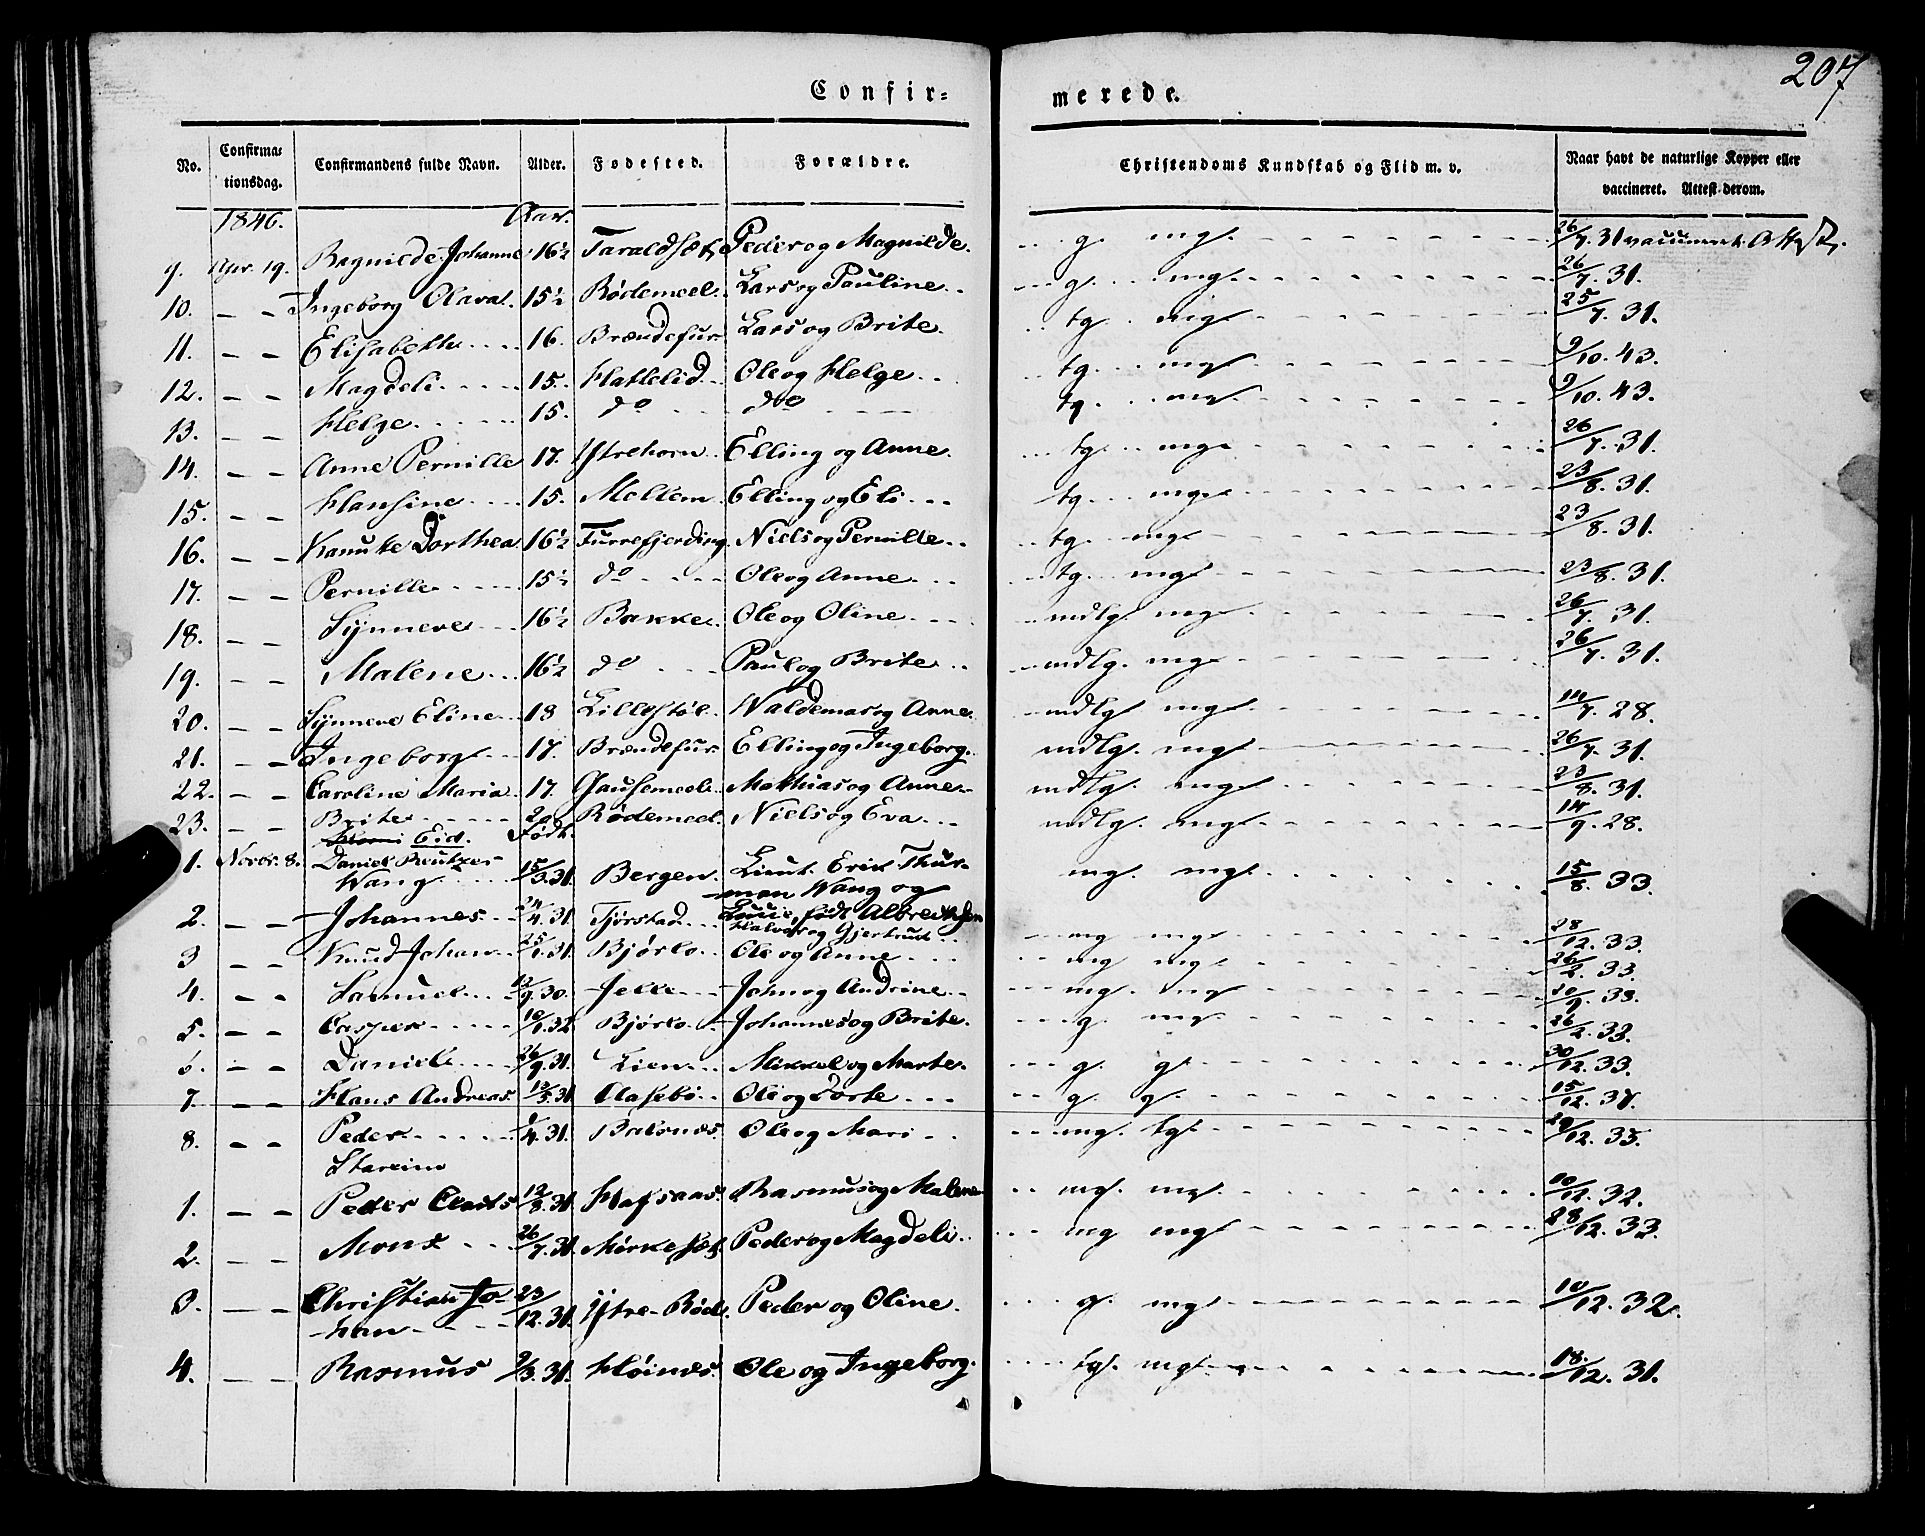 207
Confir-
merede.
No. Confirma-tionsdag. Confirmandens fulde Navn. Alder. Fødested. Forældre. Christendoms Kundskab og Flid m. v. Naar havt de naturlige Kopper eller vaccineret. Attest derom.
1846. Aar.
9. Apr. 19. Ragnilde Johanne 16½ Taraldset Peder og Magnilde. g. mg. 26/7. 31 vaccineret. Att.
10. — — Ingeborg Olava 15½ Rødemeel Lars og Pauline g. mg. 26/7. 31.
11. — — Elisabeth 16. Brændefur Lars og Brite tg. mg. 25/7. 31.
12. — — Magdeli 15. Hattelid Ole og Helge tg. mg. 9/10. 43.
13. — — Helge 15. do do tg. mg. 9/10. 43.
14. — — Anne Pernille 17. Ystrehorn Elling og Anne tg. mg. 26/7. 31.
15. — — Hansine 15. Mellem Elling og Eli tg. mg. 23/8. 31.
16. — — Kanute Dorthea 16½ Furrefjerding Niels og Pernille tg. mg. 23/8. 31.
17. — — Pernille 15½ do Ole og Anne tg. mg. 23/8. 31.
18. — — Synneve 16½ Bakke Ole og Oline mdlg. mg. 26/7. 31.
19. — — Malene 16½ do Paul og Brite mdlg. mg. 26/7. 31.
20. — — Synneve Eline 18 Lillestøl Waldemar og Anne mdlg. mg. 14/7. 28.
21. — — Ingeborg 17. Brændefur Elling og Ingeborg. mdlg. mg. 26/7. 31.
22. — — Caroline Maria 17. Gausemeel Mathias og Anne mdlg. mg. 23/8. 31.
23. — — Brite 20 Rødemeel Niels og Eva mdlg. mg. 14/9. 28.
Eid. Født.
1. Novbr. 8. Daniel Reutzer Wang 15/3. 31. Bergen Lieut. Erik Thurman Wang og Louise, født Albrechtsen mg. mg. 15/8. 33.
2. — — Johannes 24/4. 31. Tjørstad Halvor og Gjertrud mg mg. 28/12. 33.
3 — — Knud Johan 25/1. 31. Bjørlo Ole og Anne mg mg. 26/2. 33.
4. — — Samuel 12/9. 30. Jelle John og Andrine mg. mg 10/9. 33.
5. — — Casper 10/1. 32 Bjørlo Johannes og Brite. g. mg. 26/2. 33.
6. — — Daniel 26/9. 31. Lien Mikkel og Marte. g. g. 30/12. 33.
7. — — Hans Andreas 13/5. 31 Aasebø Ole og Dorte g. g. 15/12. 37.
8. — — Peder 1/4. 31. Baknes Ole og Mari mg. tg. 29/12. 35.
Stareim
1. — — Peder Claus 12/8. 31 Hafsaas Rasmus og Malene mg. mg. 10/12. 32.
2. — — Mons 26/7. 31. Mørkeset Peder og Magdeli mg mg 28/12. 33.
3. — — Christian Johan 23/12. 31. Ytre-Bød Peder og Oline. g. mg. 10/12. 32.
4. — — Rasmus 9/3. 31. Høines Ole og Ingeborg. tg. mg. 18/12. 31.